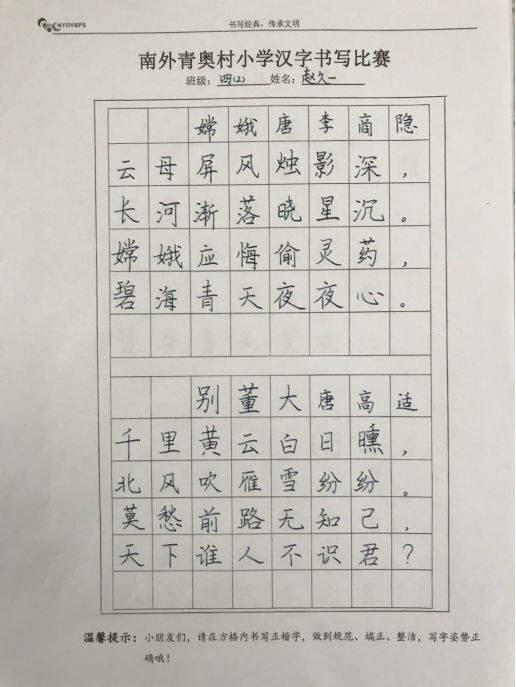 NYOVBPS
书写经典，传承文明
南外青奥村小学汉字书写比赛
班级：四(2) 姓名：赵久一
嫦娥唐李商隐
云母屏风烛影深，
长河渐落晓星沉。
嫦娥应悔偷灵药，
碧海青天夜夜心。
别董大唐高适
千里黄云白日曛，
北风吹雁雪纷纷。
莫愁前路无知己，
天下谁人不识君？
温馨提示：小朋友们，请在方格内书写正楷字，做到规范、端正、整洁，写字姿势正
确哦！